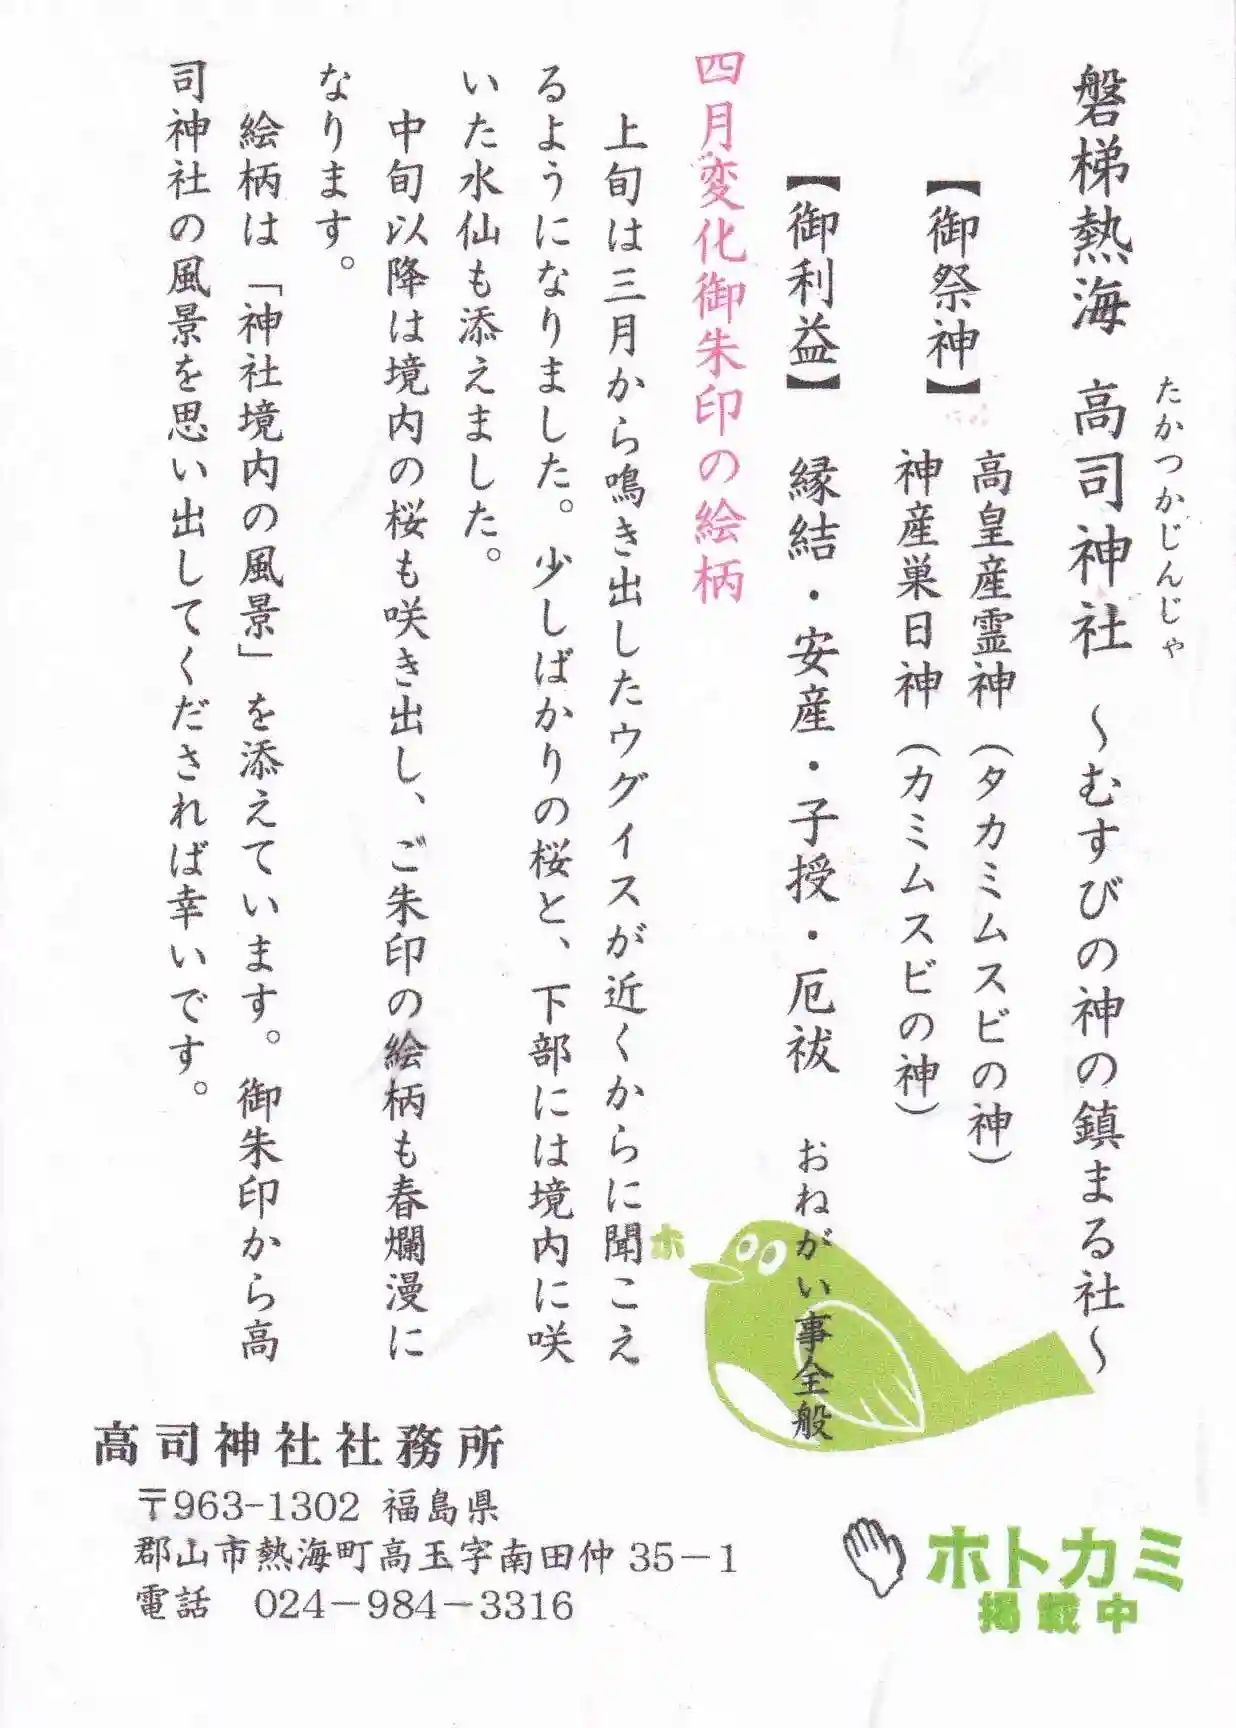 たかつかじんじゃ
磐梯熱海 高司神社 ～むすびの神の鎮まる社～
【御祭神】 高皇産霊神(タカミムスビの神)
神産巣日神(カミムスビの神)
【御利益】 縁結・安産・子授・厄祓 おねがい事全般
四月変化御朱印の絵柄
上旬は三月から鳴き出したウグイスが近くからに聞こえ
るようになりました。少しばかりの桜と、下部には境内に咲
いた水仙も添えました。
中旬以降は境内の桜も咲き出し、ご朱印の絵柄も春爛漫に
なります。
絵柄は「神社境内の風景」を添えています。御朱印から高
司神社の風景を思い出してくだされば幸いです。
ホ
高司神社社務所
〒963-1302 福島県
郡山市熱海町高玉字南田仲35－1
電話 024－984－3316
ホトカミ
掲載中